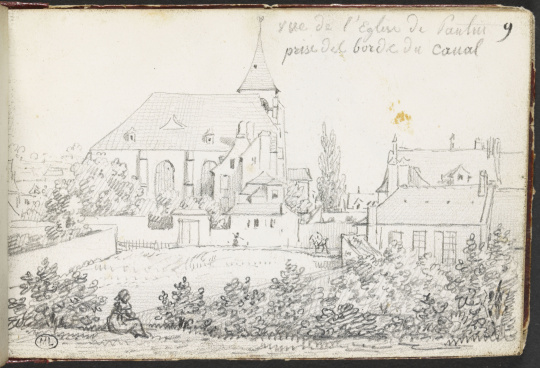 vue de l'Eglise de Pantin
prise des bords du canal
9
ML